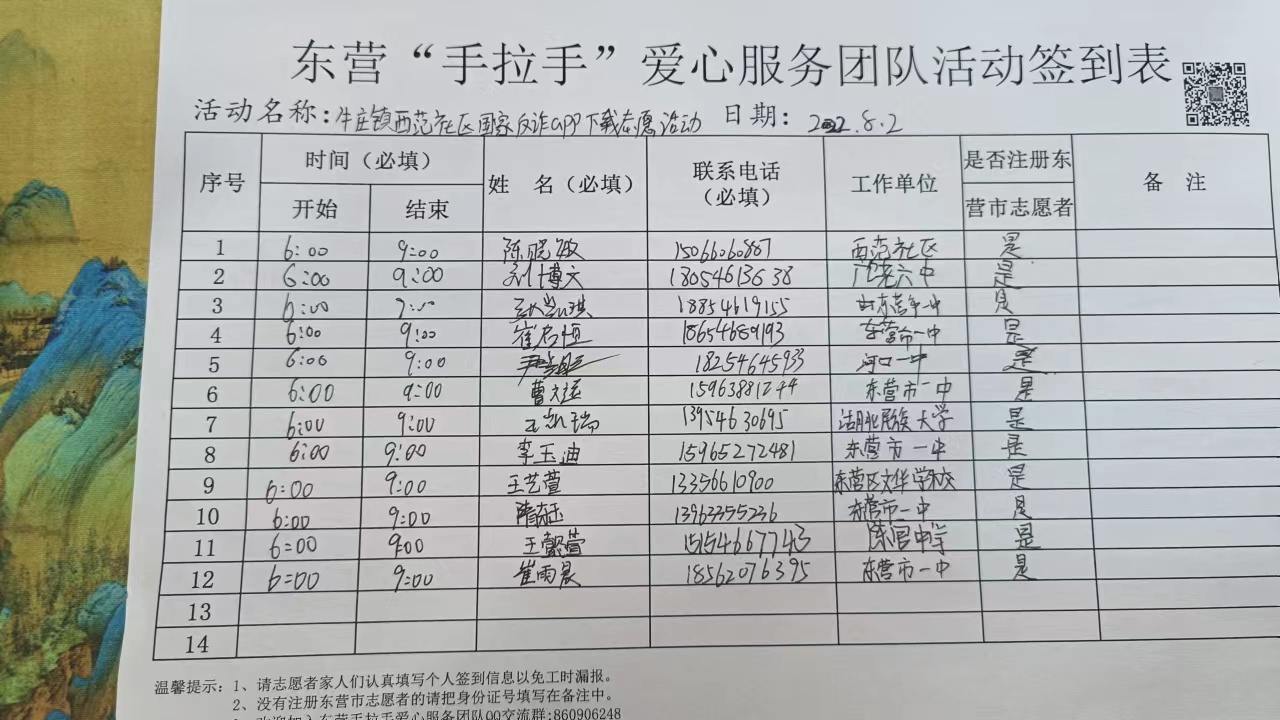 东营“手拉手”爱心服务团队活动签到表
活动名称:牛庄镇西范社区国家反诈app下载志愿活动 日期: 2022.8.2
序号 时间(必填) 姓 名(必填) 联系电话(必填) 工作单位 是否注册东营市志愿者 备 注
开始 结束
1 6:00 9:00 陈晓敏 15066060867 西范社区 是
2 6:00 9:00 刘博文 18054613638 六中 是
3 6:00 9:00 18854619155 是
4 6:00 9:00 崔名恒 18654689193 东营市一中 是
5 6:00 9:00 18254645933 河口一中 是
6 6:00 9:00 曹文 15963881244 东营市一中 是
7 6:00 9:00 王凯瑞 13954630695 湖北民族大学 是
8 6:00 9:00 李玉迪 15965272481 东营市一中 是
9 6:00 9:00 王艺萱 13356610900 东营区文华学校 是
10 6:00 9:00 隋 13963355236 东营市一中 是
11 6:00 9:00 王懿萱 15154667743 陈官中学 是
12 6:00 9:00 崔雨晨 18562076395 东营市一中 是
13
14
温馨提示:1、请志愿者家人们认真填写个人签到信息以免工时漏报。
2、没有注册东营市志愿者的请把身份证号填写在备注中。
3、欢迎加入东营手拉手爱心服务团队QQ交流群:860906248